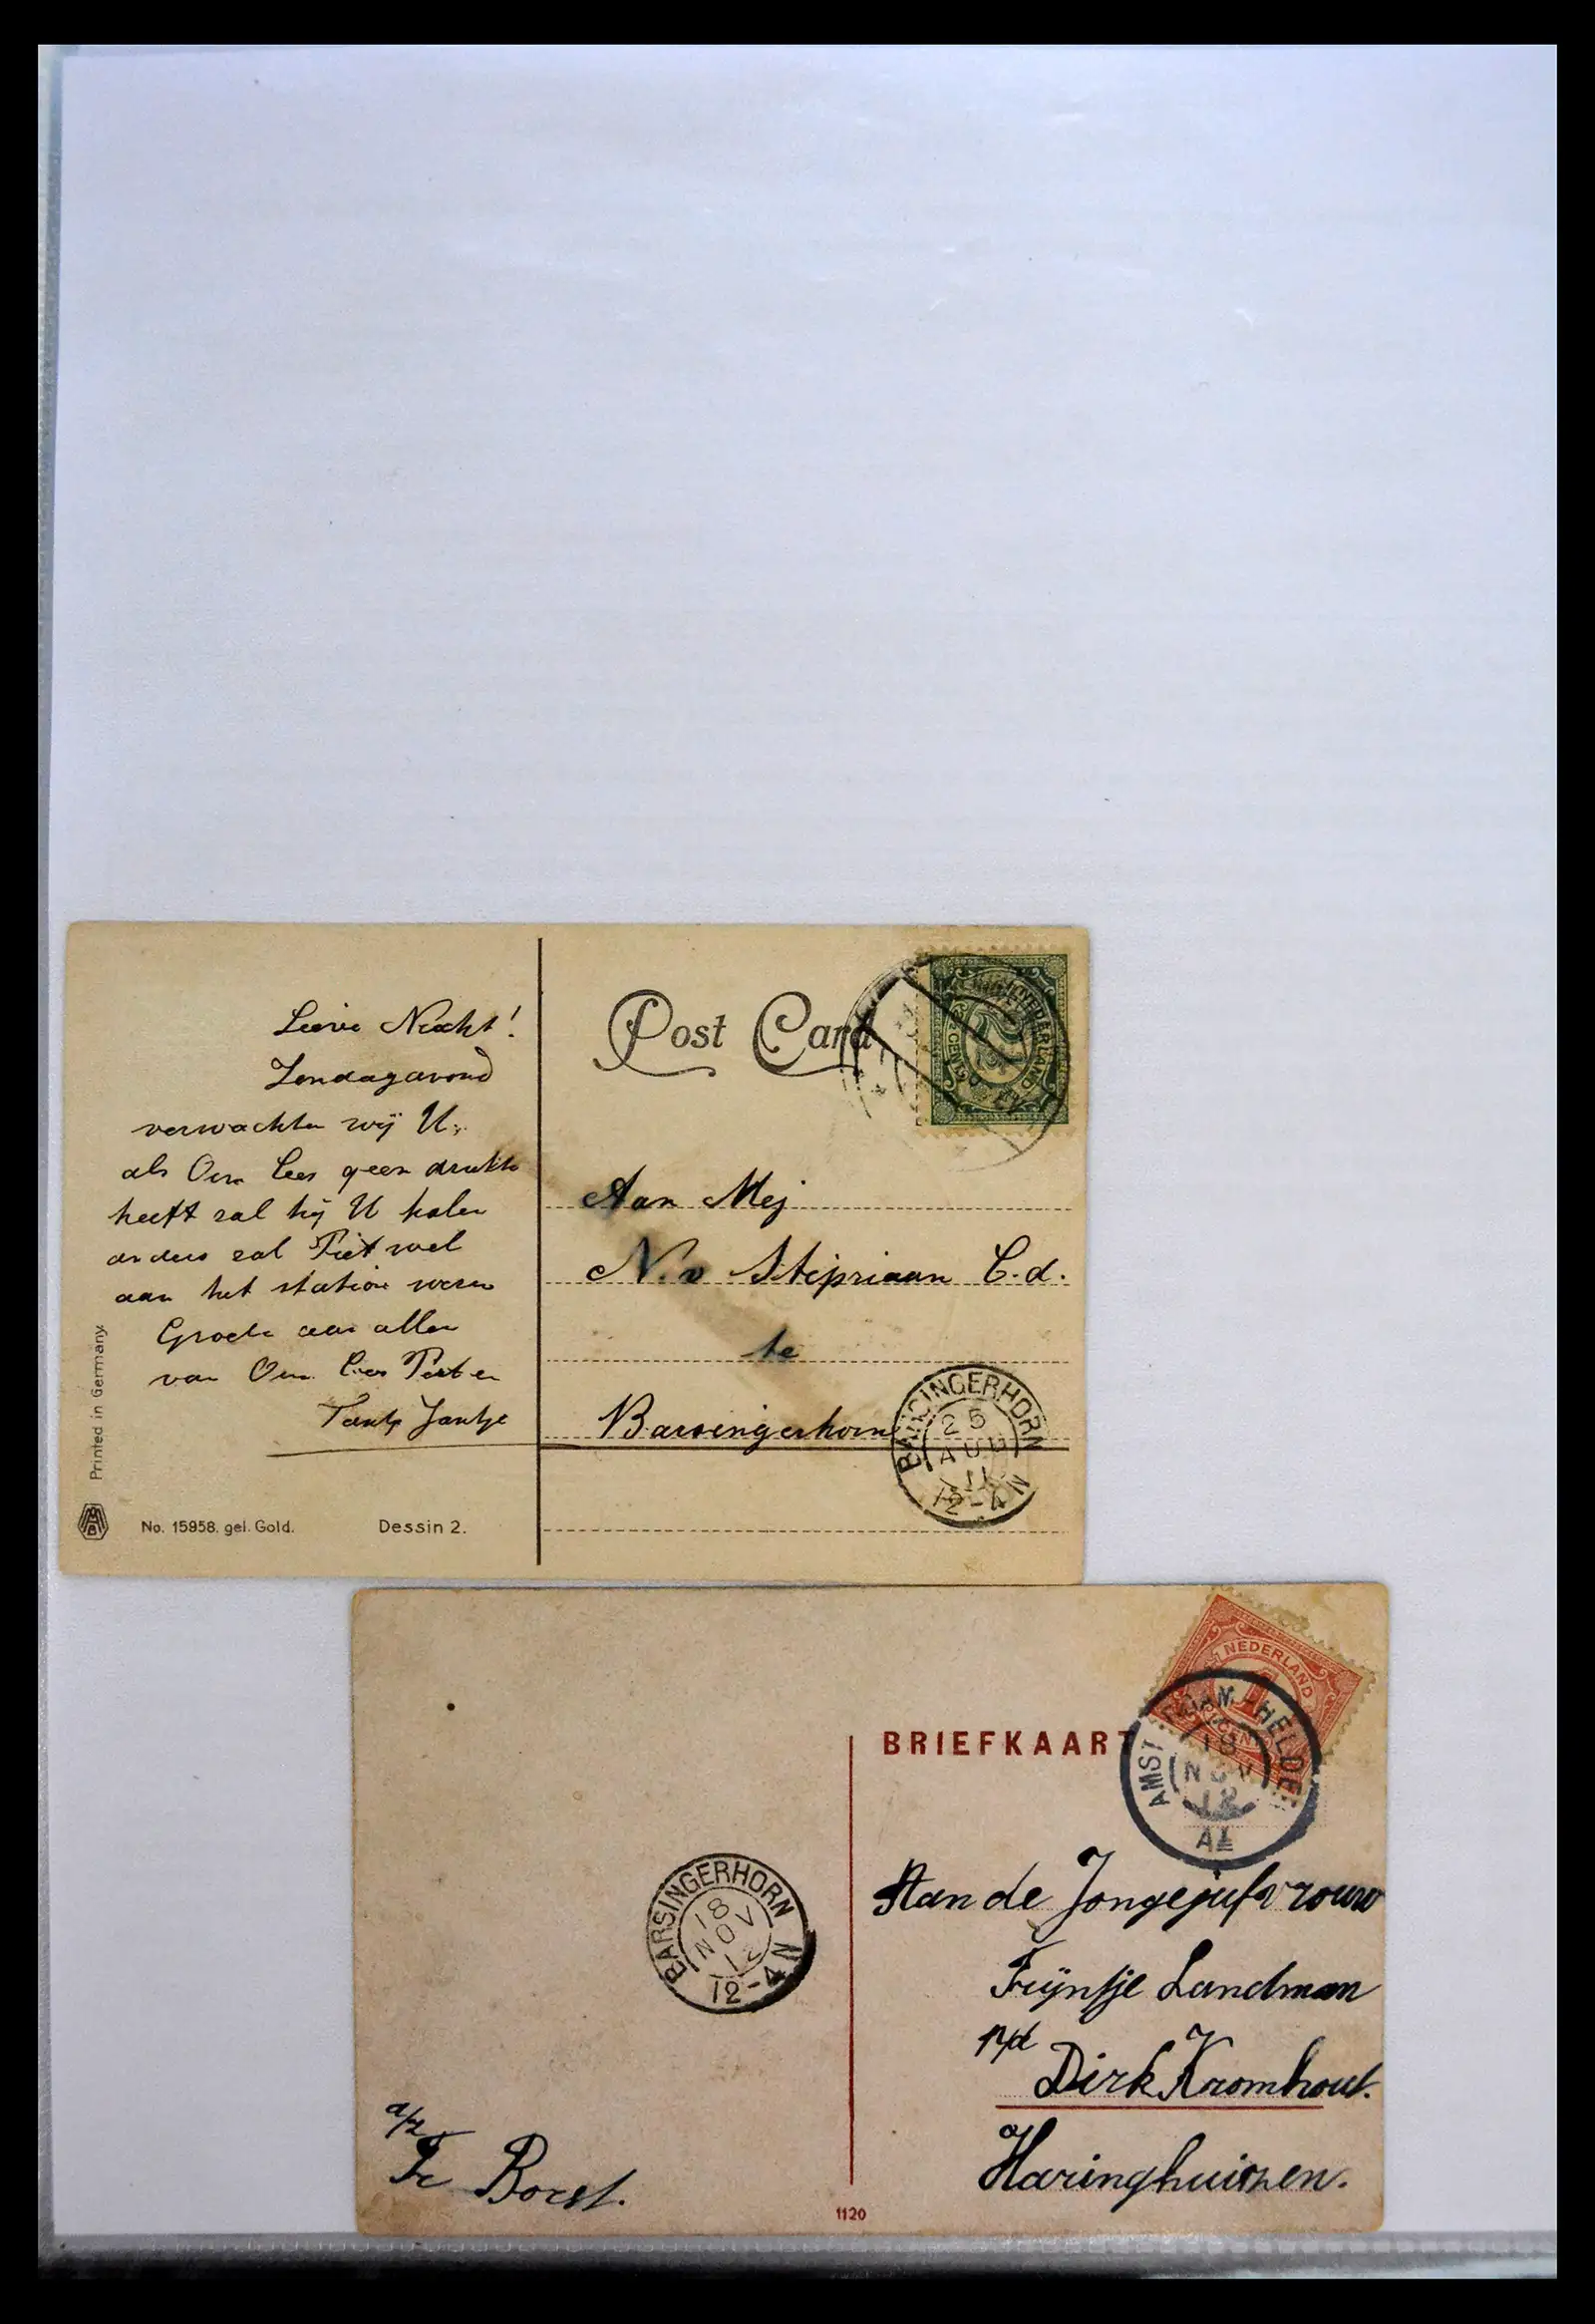 Post Card
NEDERLAND
CENT
Lieve Nicht!
Zondagavond
verwachten wij U.
als Om Cees geen drukte
heeft zal hij U halen
anders zal Piet wel
aan het station wezen
Groete aan allen
van Om Cees Piet en
Tante Jantje
Aan Mej
N. v Stipriaan C.d.
te
Barsingerhorn
BARSINGERHORN
25
AUG
11
12-4N
Printed in Germany.
No. 15958. gel. Gold.
Dessin 2.
NEDERLAND
1
CENT
BRIEFKAART
AMST HELDE
18
NOV
12
BARSINGERHORN
18
NOV
12
12-4N
Aan de Jongejufvrouw
Frijntje Landman
p/d
Dirk Kromhout.
Haringhuizen.
a/z
Borst.
1120